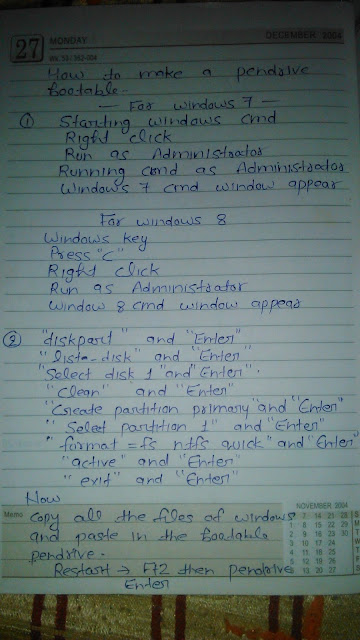 27 MONDAY DECEMBER 2004
Wk 53 / 362-004
How to make a pendrive
Bootable.
— For windows 7 —
① Starting windows cmd
Right click
Run as Administrator
Running cmd as Administrator
Windows 7 cmd window appear
For windows 8
Windows key
Press "C"
Right click
Run as Administrator
Window 8 cmd window appear
② "diskpart" and "Enter"
"liste-disk" and "Enter"
"Select disk 1" and "Enter".
"Clean" and "Enter"
"Create partition primary" and "Enter"
"Select partition 1" and "Enter"
"format =fs ntfs quick" and "Enter"
"active" and "Enter"
"exit" and "Enter"
Now
Memo
NOVEMBER 2004
Copy all the files of windows
and paste in the Bootable
pendrive.
Restart → F12 then pendrive
Enter
7 14 21 28
1 8 15 22 29
2 9 16 23 30
3 10 17 24
4 11 18 25
5 12 19 26
6 13 20 27